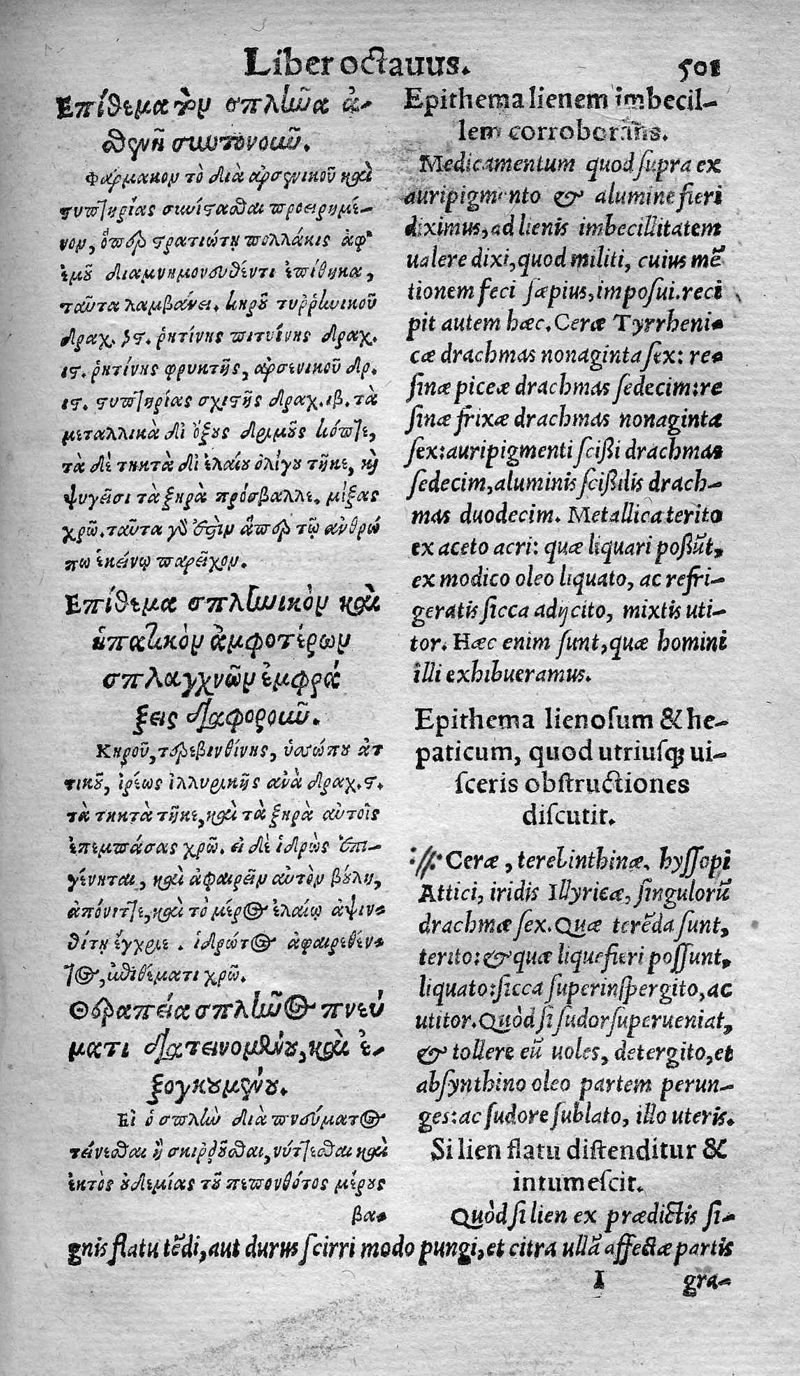 Liber octauus. 501
Ἐπίθεμα τὸν σπλῆνα ἀ-
σθενῆ συντονοῦν.
Φάρμακον τὸ διὰ ἀρσενικοῦ καὶ
στυπτηρίας συνίστασθαι προειρημέ-
νον, ὅπερ στρατιώτῃ πολλάκις ἀφ'
ἐμοῦ διαμνημονευθέντι ἐπέθηκα,
ταῦτα λαμβάνει. κηροῦ τυρρηνικοῦ
δραχ. ϟϛ. ῥητίνης πιτυΐνης δραχ.
ιϛ. ῥητίνης φρυκτῆς, ἀρσενικοῦ δρ.
ιϛ. στυπτηρίας σχιστῆς δραχ. ιβ. τὰ
μεταλλικὰ δι' ὄξους δριμέος κόπτε,
τὰ δὲ τηκτὰ δι' ἐλαίου ὀλίγου τῆκε, καὶ
ψυγεῖσι τὰ ξηρὰ πρόσβαλλε. μίξας
χρῶ. ταῦτα γάρ ἐστιν ἅπερ τῷ ἀνθρώ
πῳ ἐκείνῳ παρεῖχον.
Ἐπίθεμα σπληνικὸν καὶ
ἡπατικὸν ἀμφοτέρων
σπλαγχνῶν ἐμφρά
ξεις διαφοροῦν.
Κηροῦ, τερεβινθίνης, ὑσσώπου ἀτ
τικοῦ, ἴρεως ἰλλυρικῆς ἀνὰ δραχ. ϛ.
τὰ τηκτὰ τῆκε, καὶ τὰ ξηρὰ αὐτοῖς
ἐπεμπάσας χρῶ. εἰ δὲ ἱδρὼς ἐπι-
γένηται, καὶ ἀφαιρεῖν αὐτὸν βούλῃ,
ἀπόνιπτε, καὶ τὸ μέρος ἐλαίῳ ἀψιν-
θίτῃ ἔγχριε. ἱδρῶτος ἀφαιρεθέν-
τος, ἐπιθέματι χρῶ.
Θεραπεία σπληνὸς πνεύ
ματι διατεινομένου, καὶ ἐ-
ξογκουμένου.
Εἰ ὁ σπλὴν διὰ πνεύματος
τείνεσθαι ἢ σκιρροῦσθαι, νύττεσθαι καὶ
ἐκτὸς οὐδεμίας τοῦ πεπονθότος μέρους
βα-
Epithema lienem imbecil-
lem corroborans.
Medicamentum quod supra ex
auripigmento & alumine fieri
diximus, ad lienis imbecillitatem
ualere dixi, quod militi, cuius mē
tionem feci sæpius, imposui. reci
pit autem hæc. Ceræ Tyrrheni-
cæ drachmas nonaginta sex: re-
sinæ piceæ drachmas sedecim: re
sinæ frixæ drachmas nonaginta
sex: auripigmenti scißi drachmas
sedecim, aluminis scißilis drach-
mas duodecim. Metallica terito
ex aceto acri: quæ liquari poßūt,
ex modico oleo liquato, ac refri-
geratis sicca adijcito, mixtis uti-
tor. Hæc enim sunt, quæ homini
illi exhibueramus.
Epithema lienosum & he-
paticum, quod utriusq; ui-
sceris obstructiones
discutit.
Ceræ, terebinthinæ, hyssopi
Attici, iridis Illyricæ, singulorū
drachmæ sex. Quæ terēda sunt,
terito: & quæ liquefieri possunt,
liquato: sicca superinspergito, ac
utitor. Quòd si sudor superueniat,
& tollere eū uoles, detergito, et
absynthino oleo partem perun-
ges: ac sudore sublato, illo uteris.
Si lien flatu distenditur &
intumescit.
Quòd si lien ex prædictis si-
gnis flatu tēdi, aut durus scirri modo pungi, et citra ullā affectæ partis
I gra-